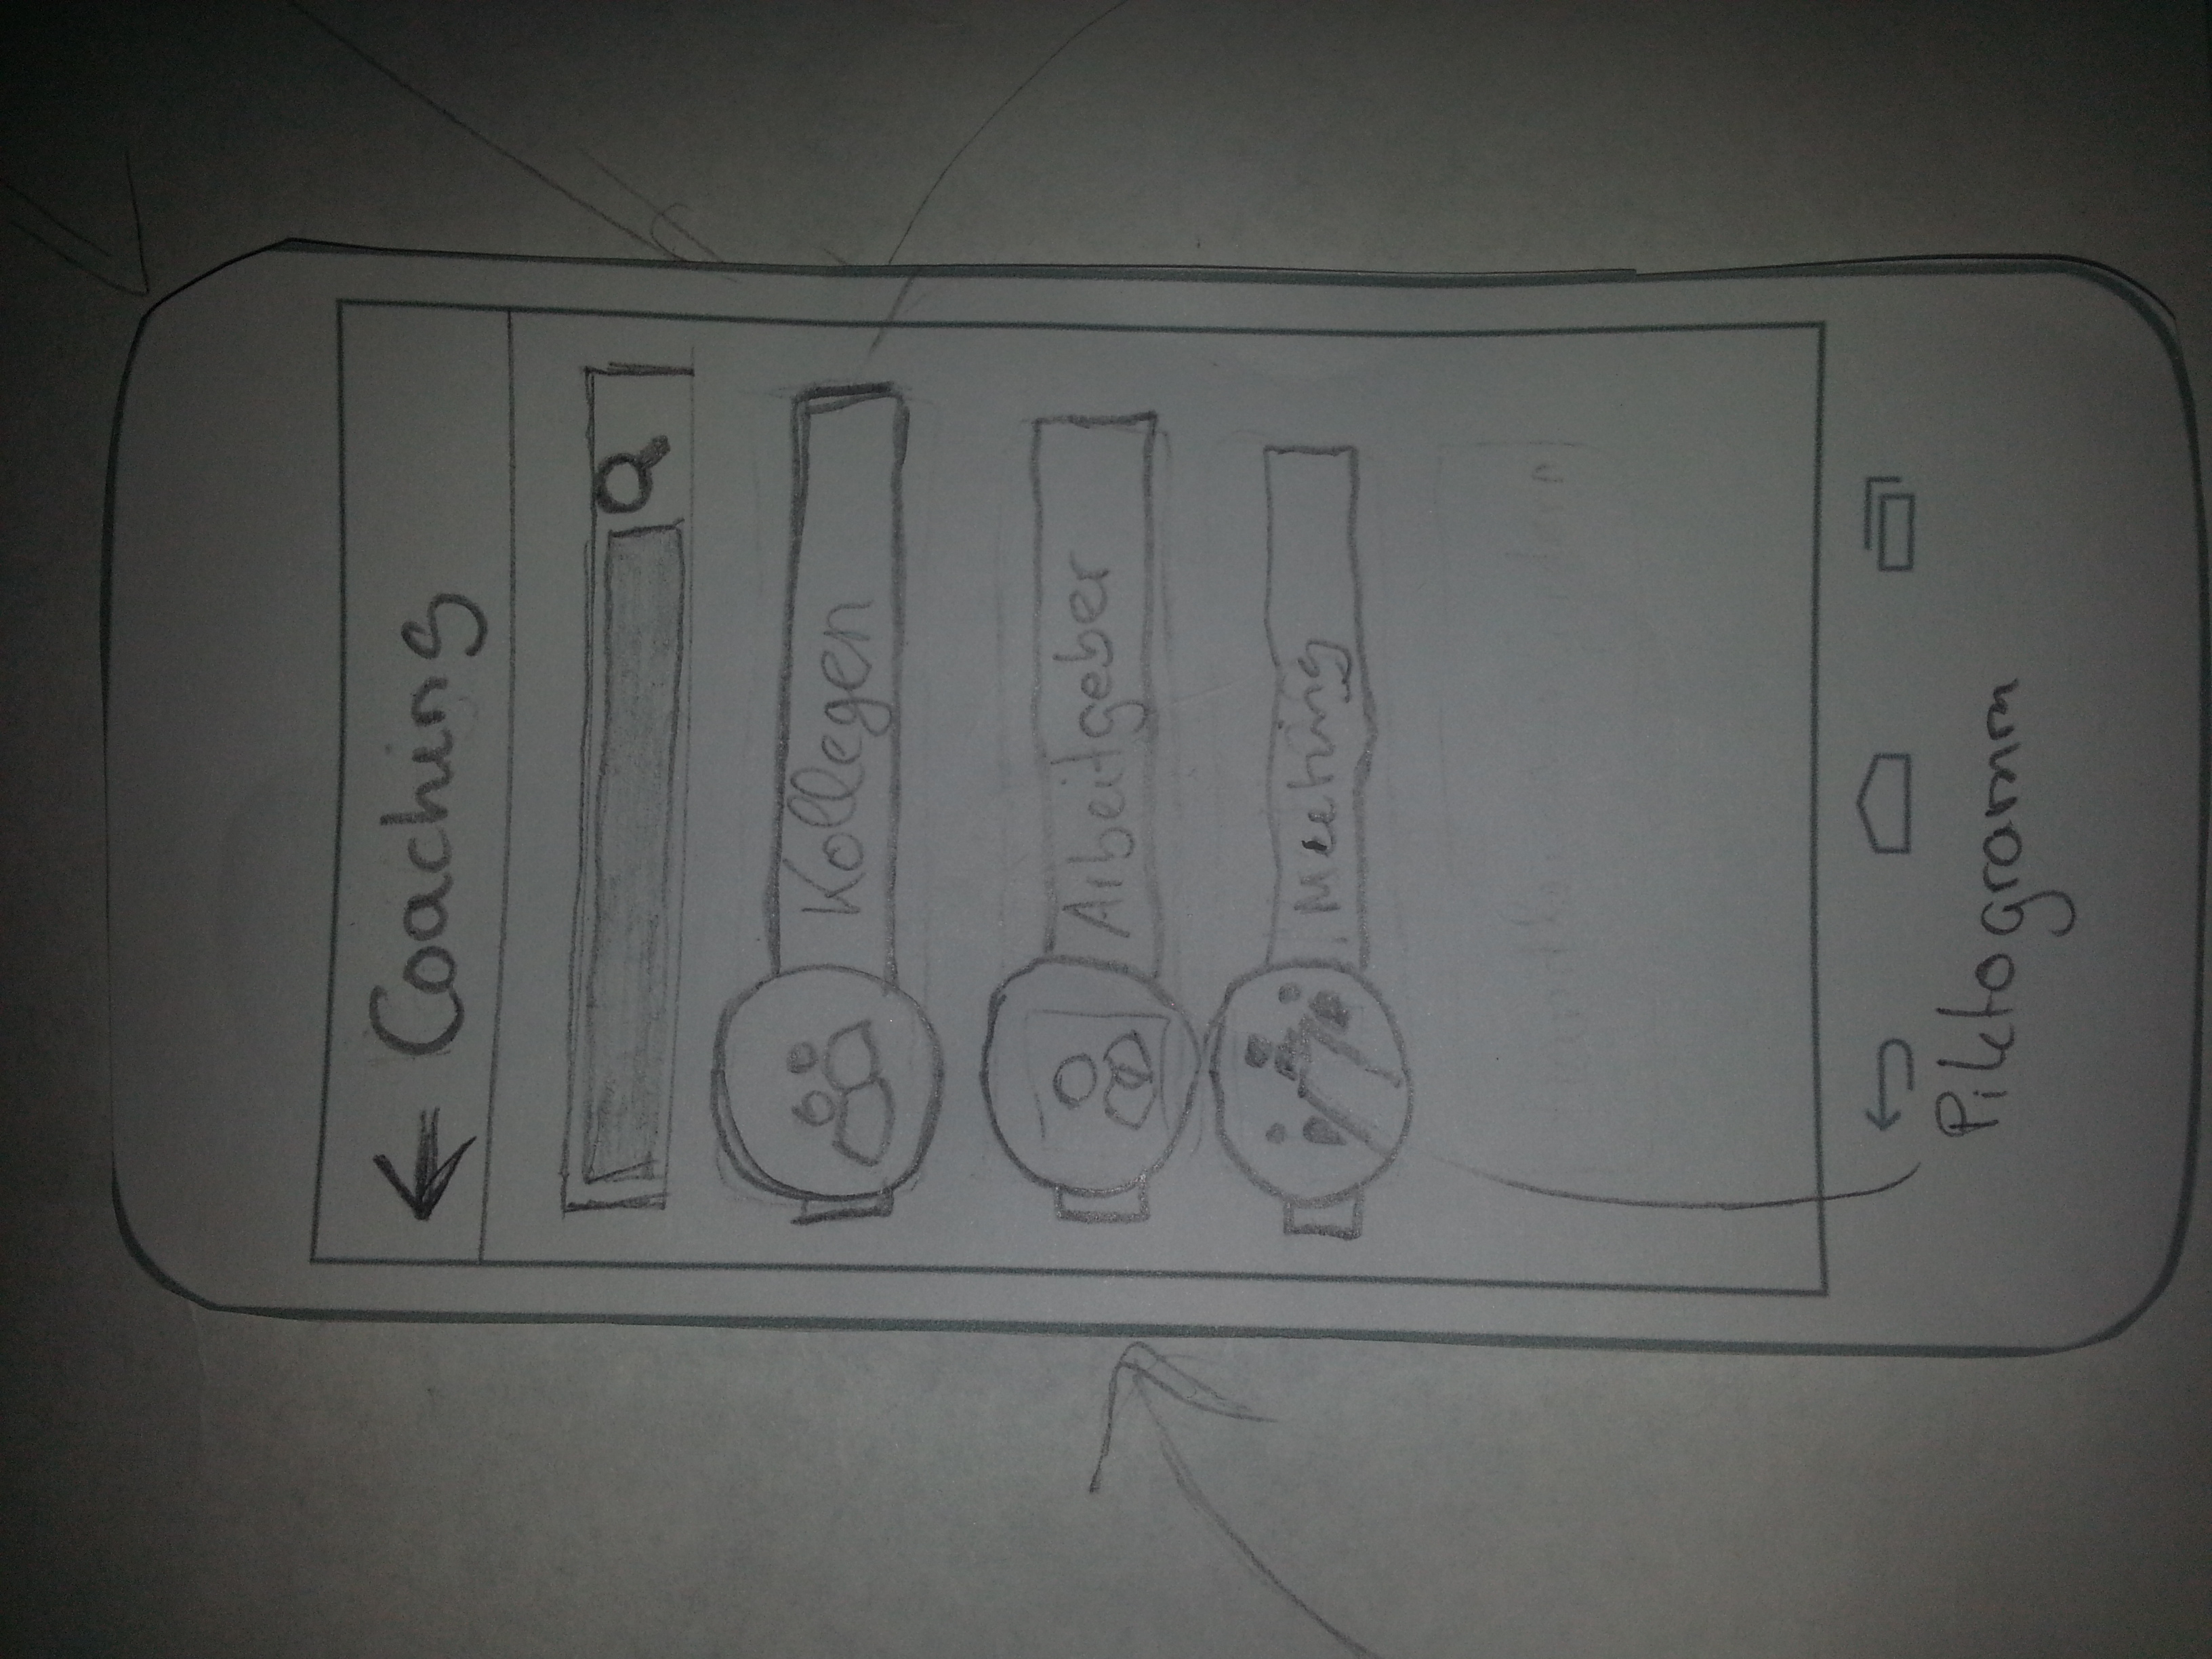 Coaching
Kollegen
Arbeitgeber
Meeting
Piktogramm